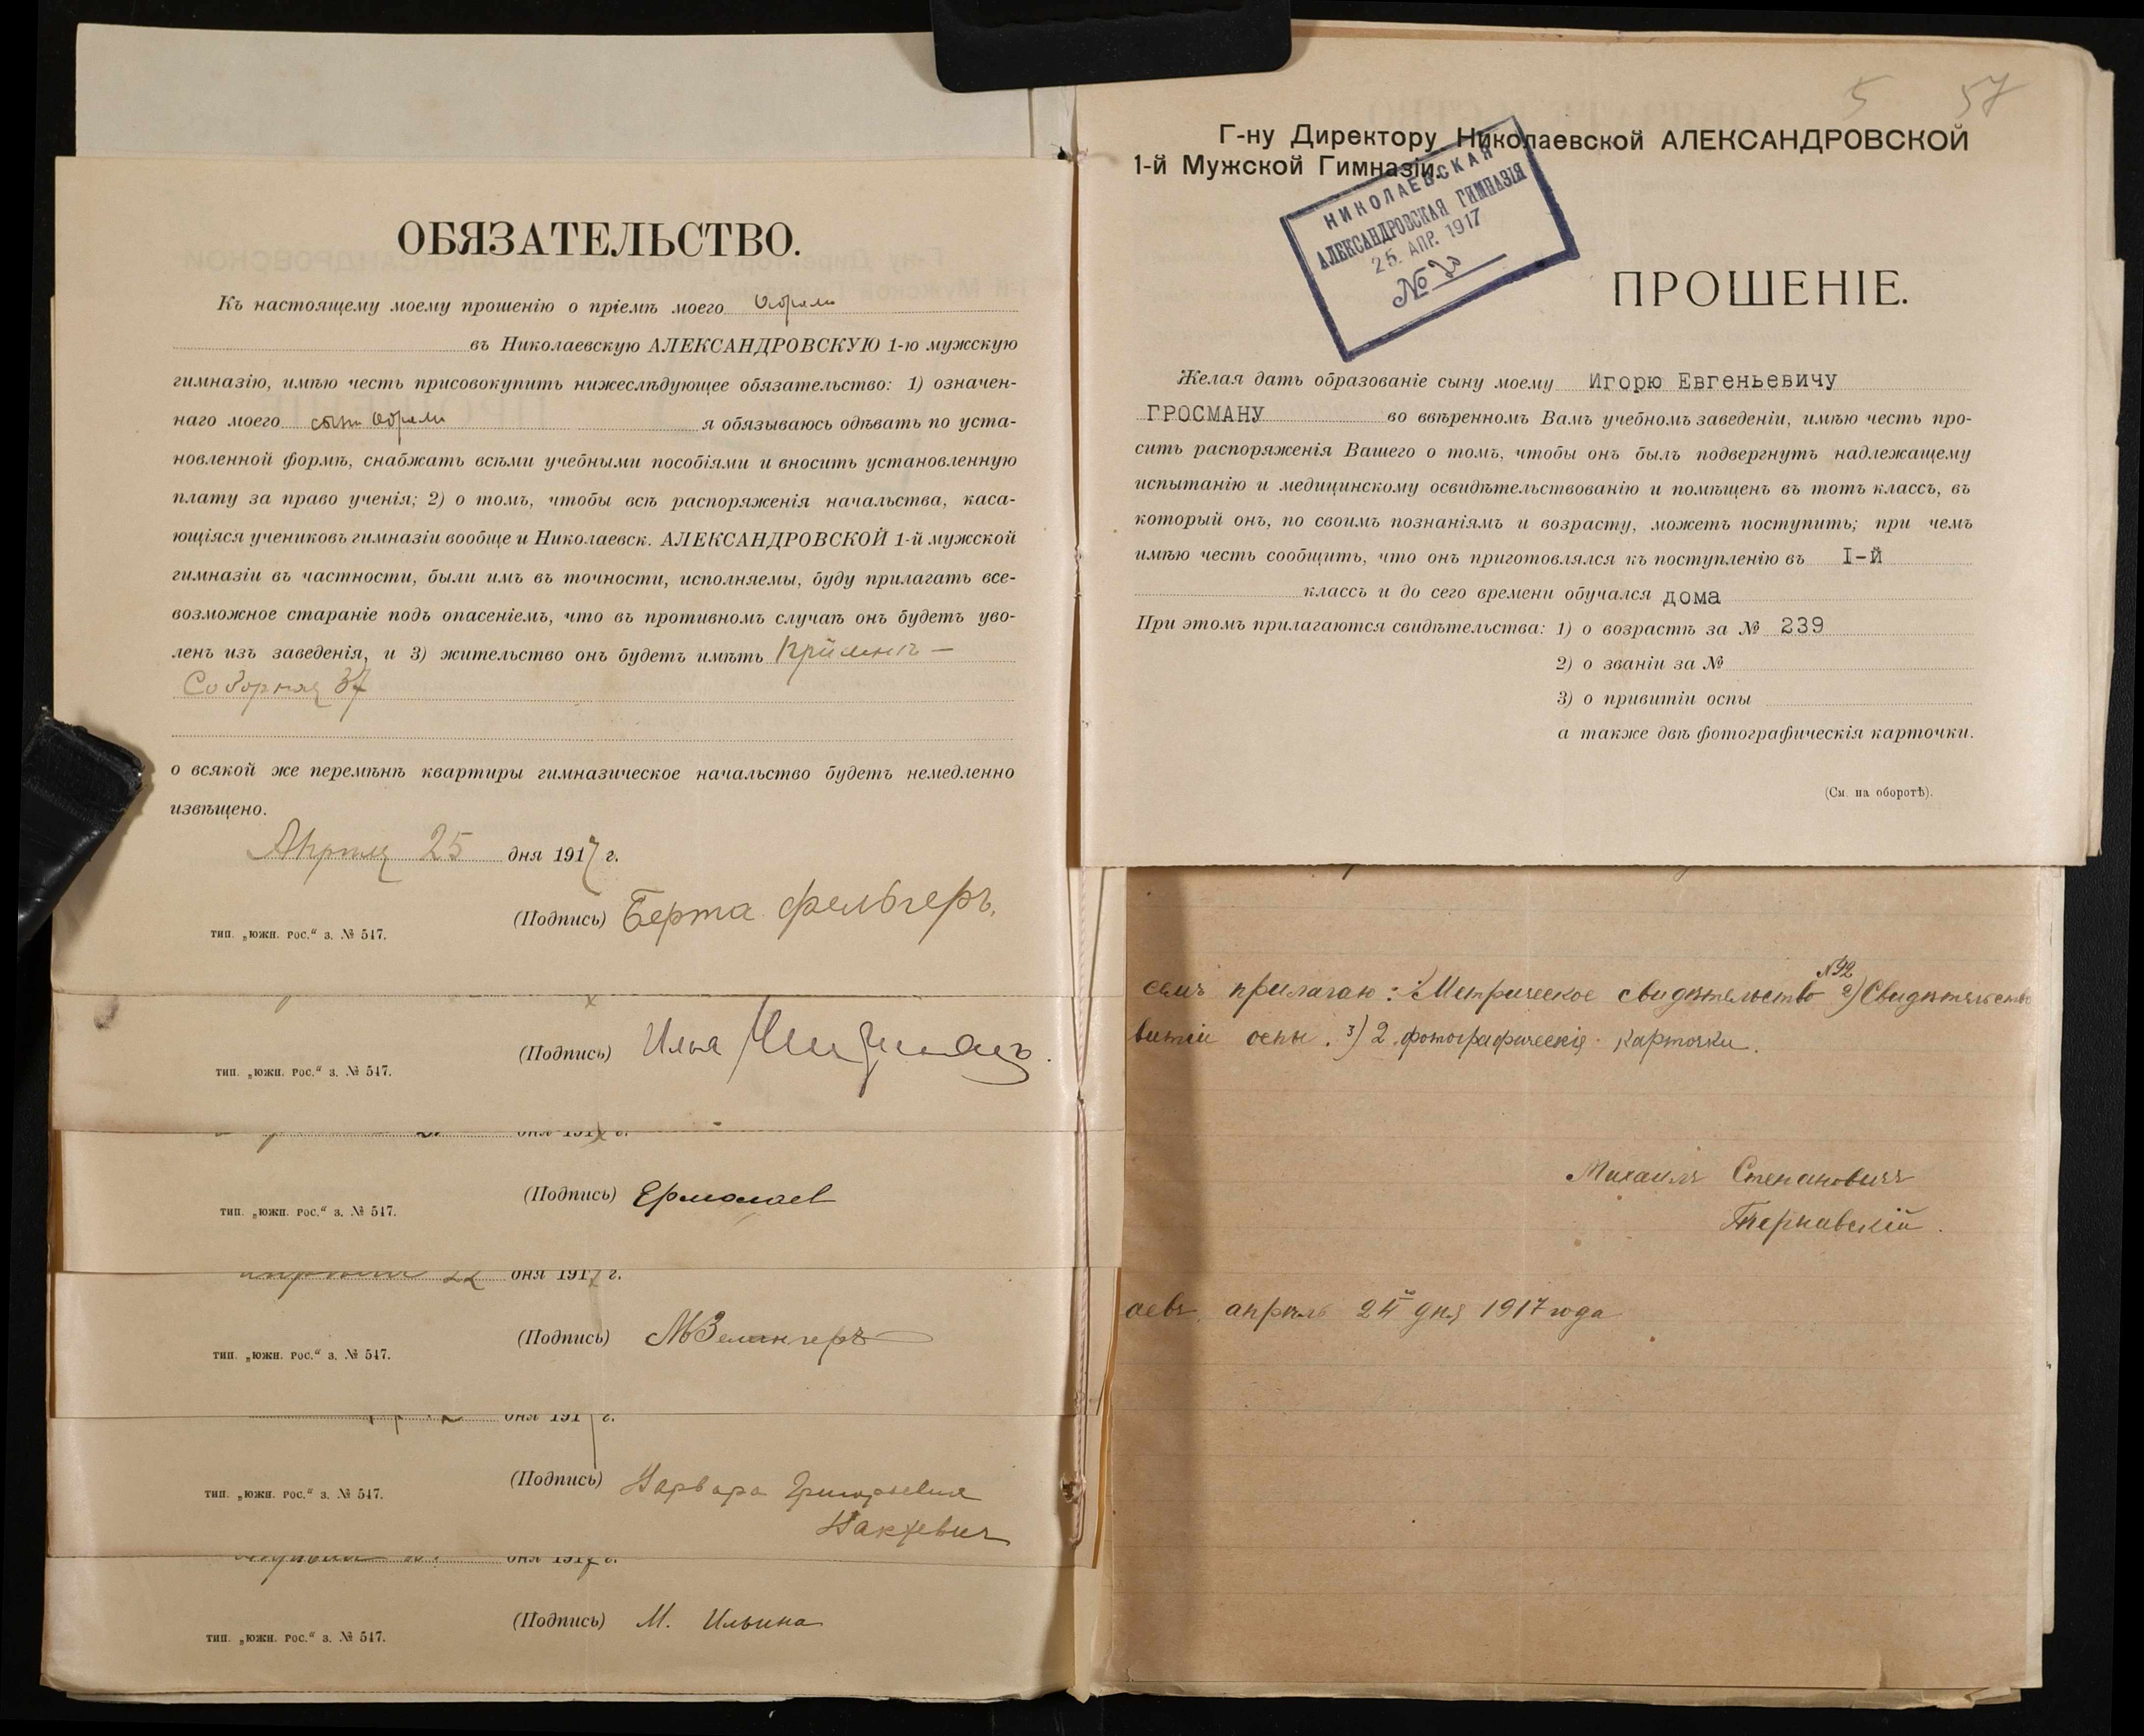 ОБЯЗАТЕЛЬСТВО.
Къ настоящему моему прошенію о пріемѣ моего
въ Николаевскую АЛЕКСАНДРОВСКУЮ 1-ю мужскую
гимназію, имѣю честь присовокупить нижеслѣдующее обязательство: 1) означен-
наго моего сына я обязываюсь одѣвать по уста-
новленной формѣ, снабжать всѣми учебными пособіями и вносить установленную
плату за право ученія; 2) о томъ, чтобы всѣ распоряженія начальства, каса-
ющіяся учениковъ гимназіи вообще и Николаевск. АЛЕКСАНДРОВСКОЙ 1-й мужской
гимназіи въ частности, были имъ въ точности, исполняемы, буду прилагать все-
возможное стараніе подъ опасеніемъ, что въ противномъ случаѣ онъ будетъ уво-
ленъ изъ заведенія, и 3) жительство онъ будетъ имѣть
Соборная 37
о всякой же перемѣнѣ квартиры гимназическое начальство будетъ немедленно
извѣщено.
Апрѣля 25 дня 1917 г.
(Подпись) Берта Фельгеръ.
тип. „южн. рос.“ з. № 547.
(Подпись) Илья
тип. „южн. рос.“ з. № 547.
дня 191 г.
(Подпись) Ермолаев
тип. „южн. рос.“ з. № 547.
апрѣля 22 дня 1917 г.
(Подпись) М Зелингеръ
тип. „южн. рос.“ з. № 547.
дня 191 г.
(Подпись) Варвара Григорьевна
Вакхевич
тип. „южн. рос.“ з. № 547.
дня 1917 г.
(Подпись) М. Ильина
тип. „южн. рос.“ з. № 547.
5 57
Г-ну Директору Николаевской АЛЕКСАНДРОВСКОЙ
1-й Мужской Гимназіи.
НИКОЛАЕВСКАЯ
АЛЕКСАНДРОВСКАЯ ГИМНАЗІЯ
25. АПР. 1917
№
ПРОШЕНІЕ.
Желая дать образованіе сыну моему Игорю Евгеньевичу
ГРОСМАНУ во ввѣренномъ Вамъ учебномъ заведеніи, имѣю честь про-
сить распоряженія Вашего о томъ, чтобы онъ былъ подвергнутъ надлежащему
испытанію и медицинскому освидѣтельствованію и помѣщенъ въ тотъ классъ, въ
который онъ, по своимъ познаніямъ и возрасту, можетъ поступить; при чемъ
имѣю честь сообщить, что онъ приготовлялся къ поступленію въ I-й
классъ и до сего времени обучался дома
При этомъ прилагаются свидѣтельства: 1) о возрастѣ за № 239
2) о званіи за №
3) о привитіи оспы
а также двѣ фотографическія карточки.
(См. на оборотѣ).
семъ прилагаю: 1) Метрическое свидѣтельство №92 2) Свидѣтельство
витіи оспы. 3) 2 фотографическія карточки.
Михаилъ Степановичъ
Тернавскій.
аевъ, апрѣль 24й дня 1917 года